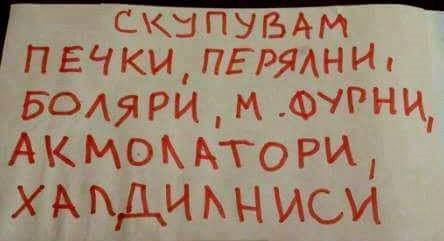 СКУПУВАМ
ПЕЧКИ, ПЕРЯЛНИ,
БОЛЯРИ, М.ФУРНИ,
АКМОЛАТОРИ,
ХАЛДИЛНИСИ